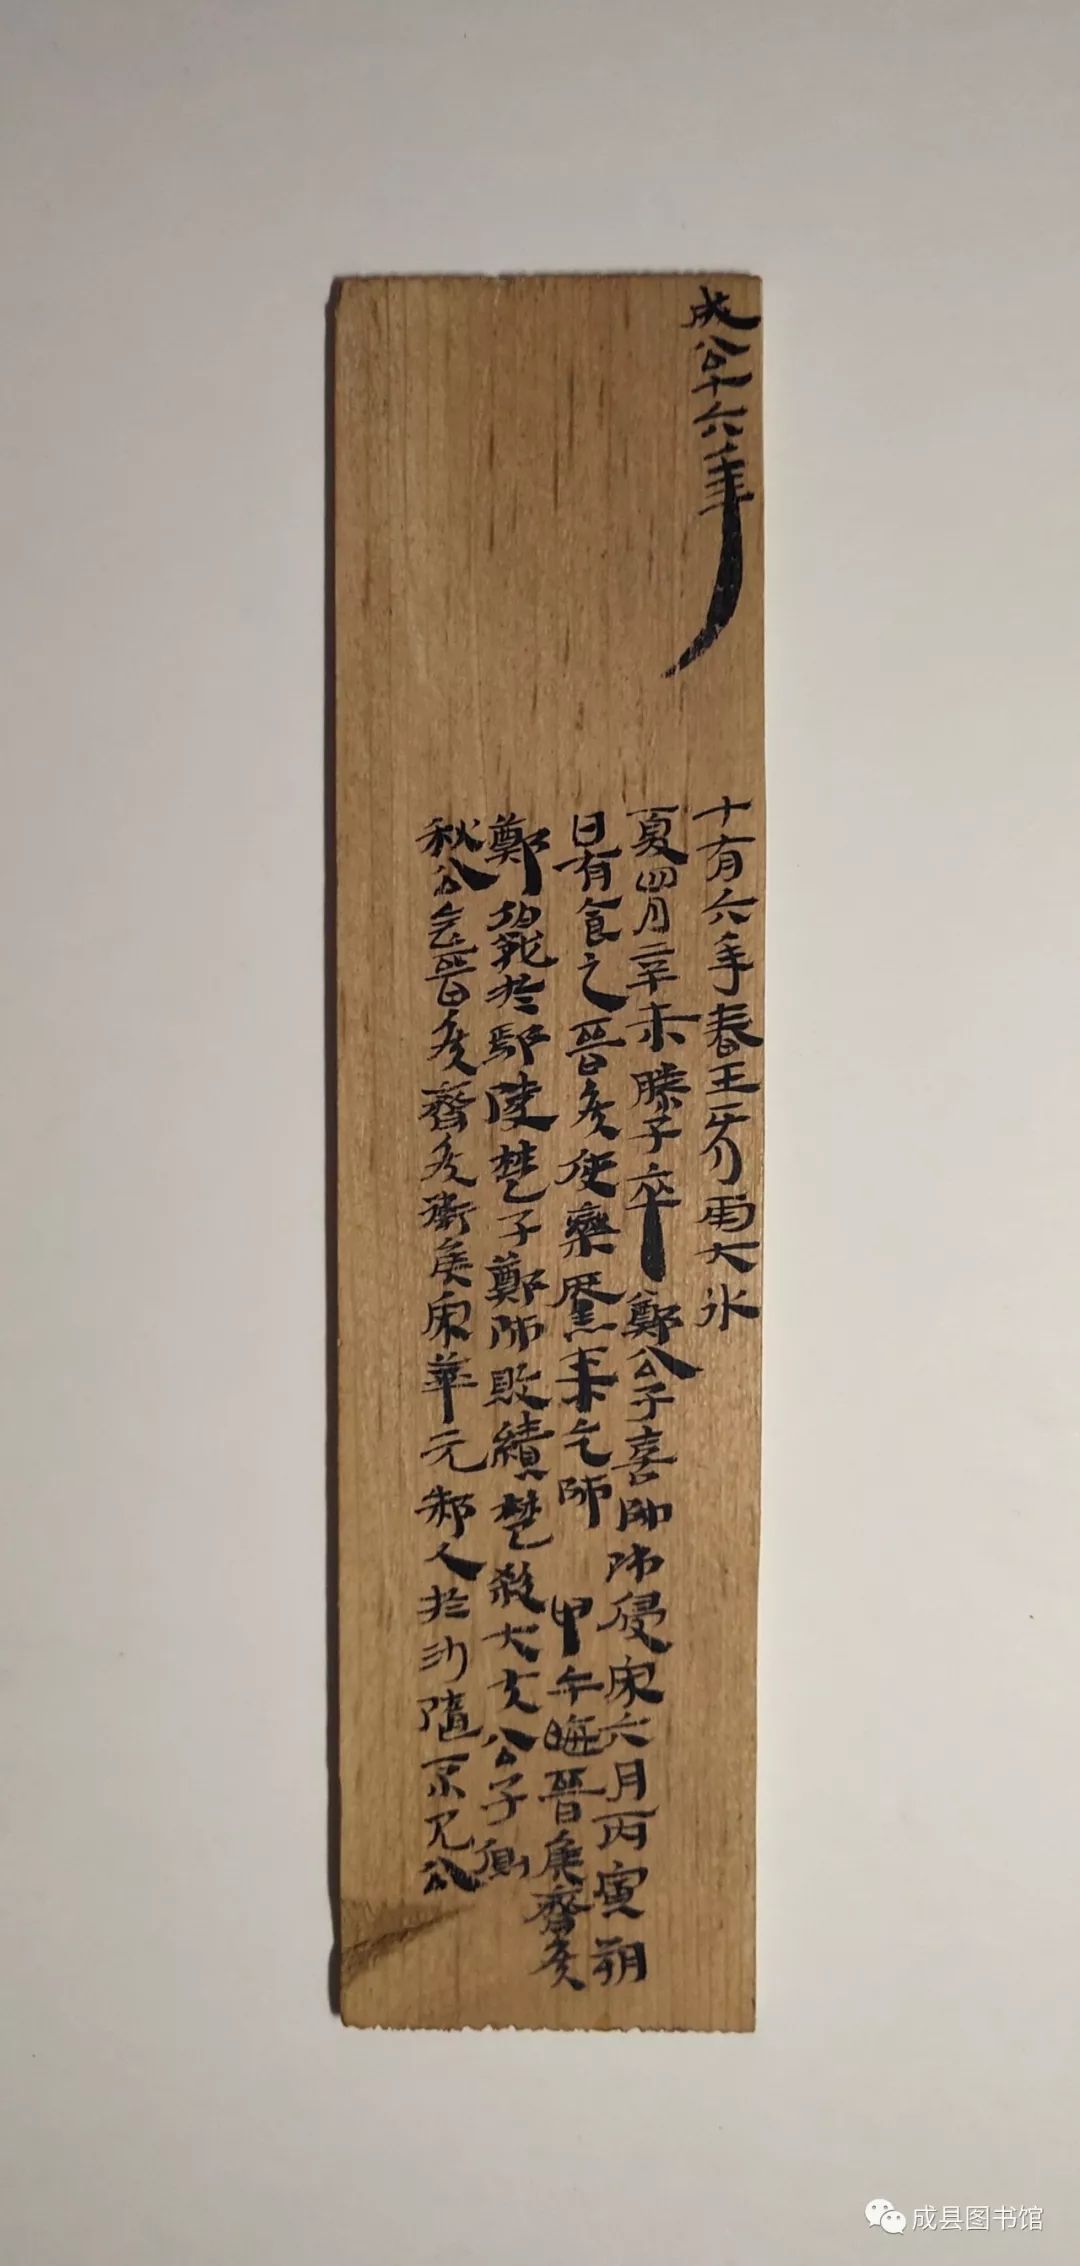 成公十六年
十有六年春王正月雨大冰
夏四月辛未滕子卒 鄭公子喜帥師侵宋六月丙寅朔
日有食之晉侯使欒黶來乞師 甲午晦晉侯齊侯
鄭伯戰於鄢陵楚子鄭師敗績楚殺大夫公子側
秋公會晉侯齊侯衛侯宋華元邾人於沙隨不見公
成县图书馆